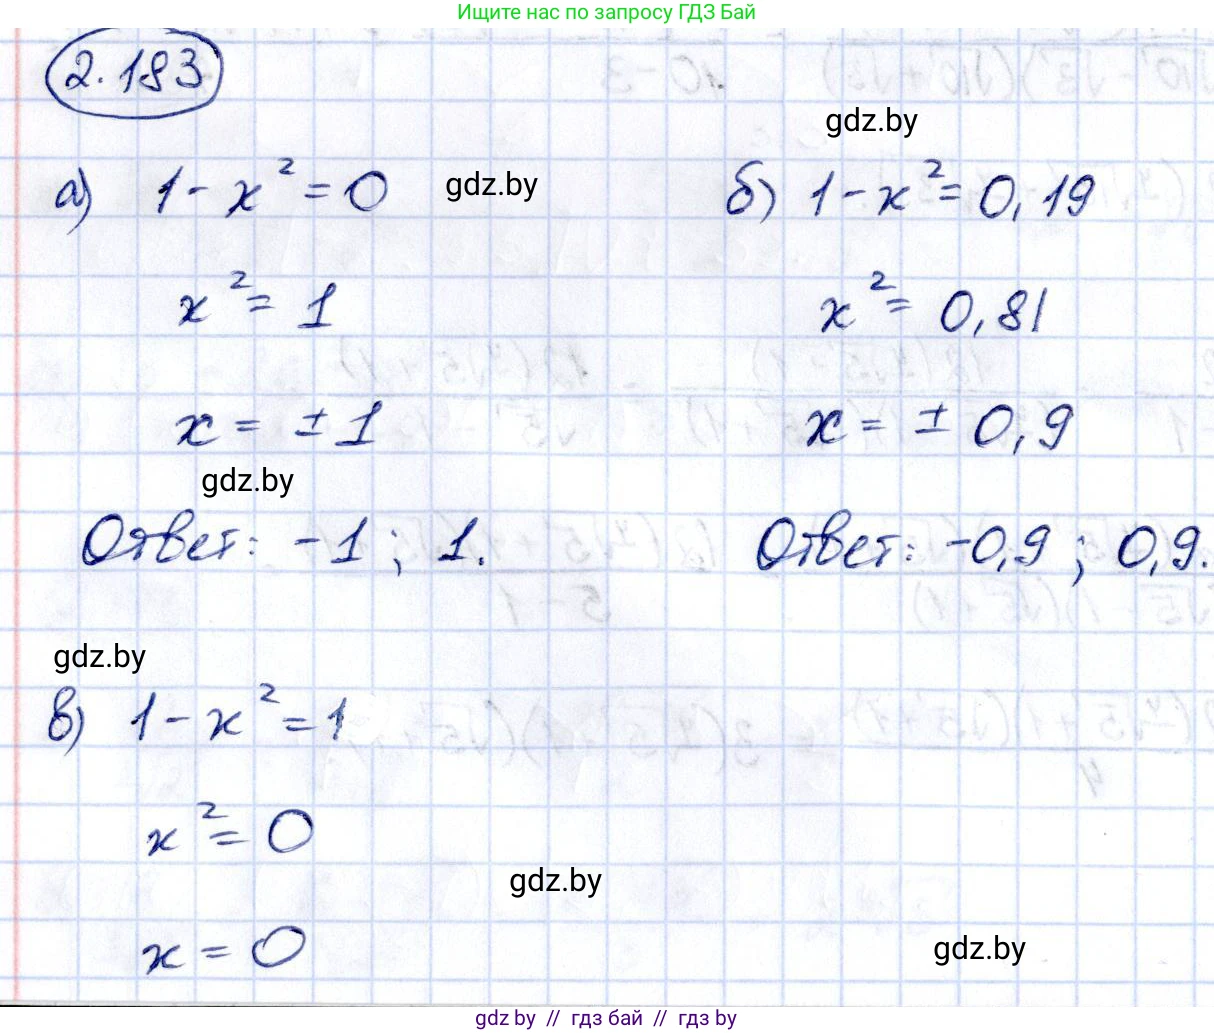 Ищите нас по запросу ГДЗ Бай
2.183
gdz.by
а) 1 - x² = 0
gdz.by
б) 1 - x² = 0,19
x² = 1
x² = 0,81
x = ± 1
x = ± 0,9
gdz.by
Ответ: -1 ; 1.
Ответ: -0,9 ; 0,9.
gdz.by
в) 1 - x² = 1
x² = 0
gdz.by
x = 0
gdz.by
gdz by // гдз бай // гдз by